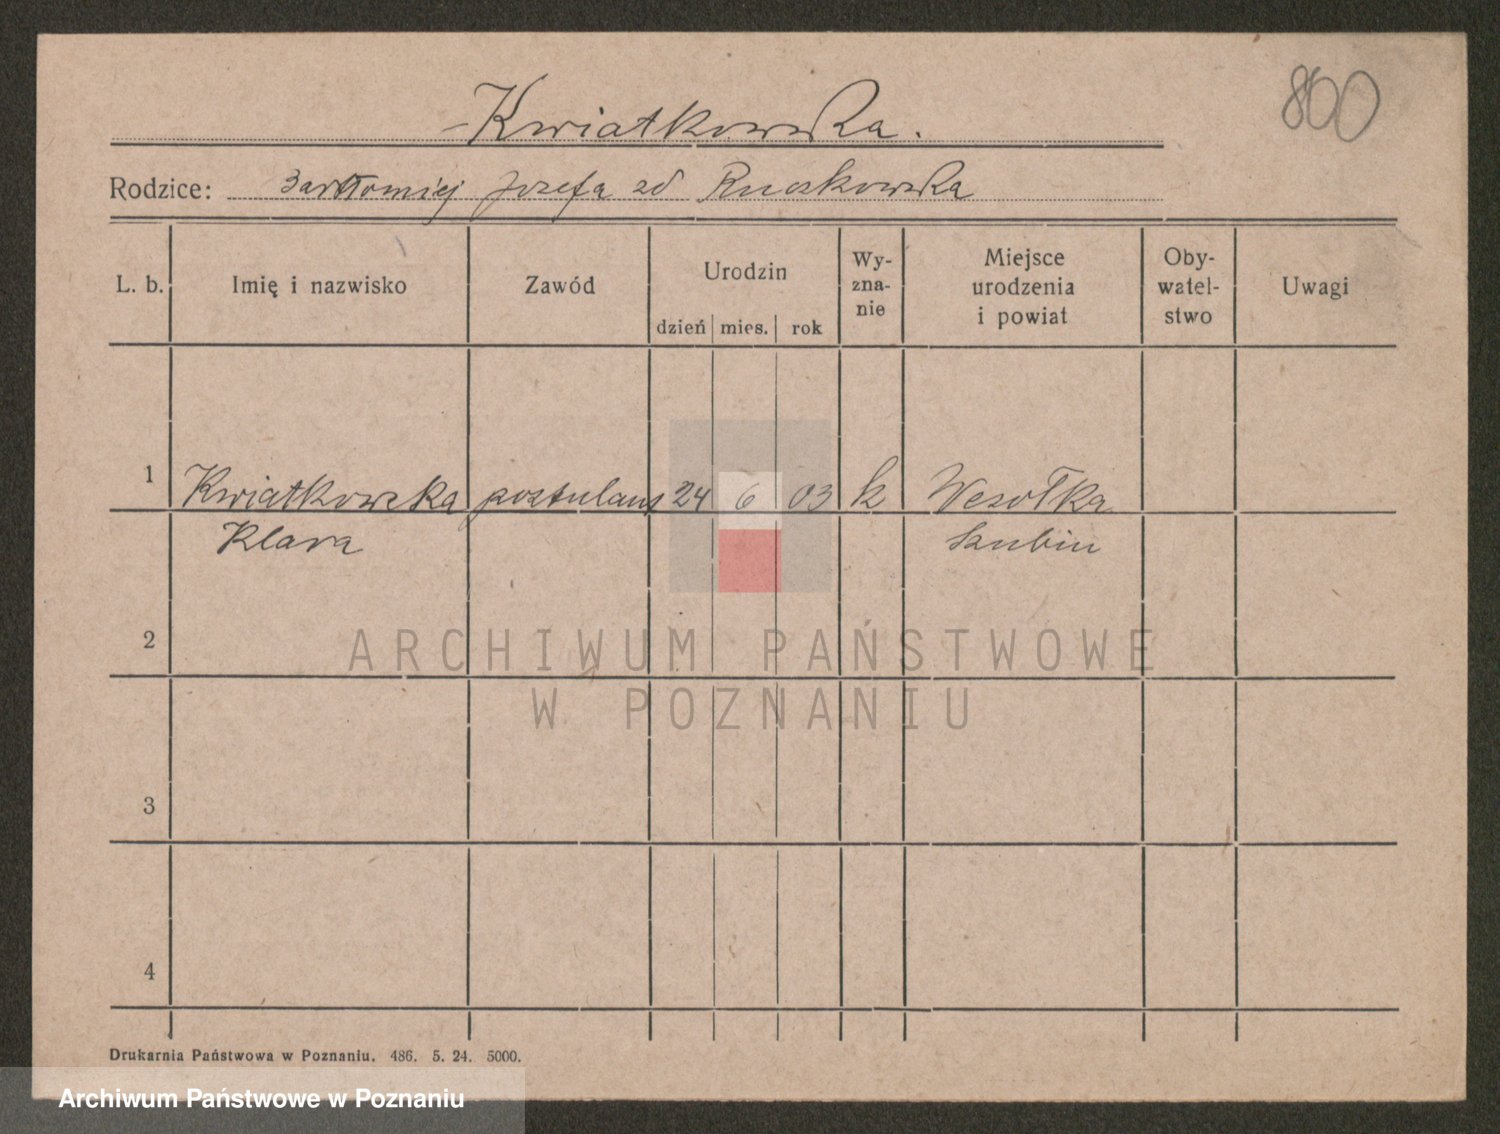 800
Kwiatkowska.
Rodzice: Bartłomiej Jozefa zd Ruszkowska
L. b. Imię i nazwisko Zawód Urodzin Wy-zna-nie Miejsce urodzenia i powiat Oby-watel-stwo Uwagi
dzień mies. rok
1 Kwiatkowska postulant 24 6 03 k Wesołka
Klara Szubin
2
3
4
ARCHIWUM PAŃSTWOWE
W POZNANIU
Drukarnia Państwowa w Poznaniu. 486. 5. 24. 5000.
Archiwum Państwowe w Poznaniu